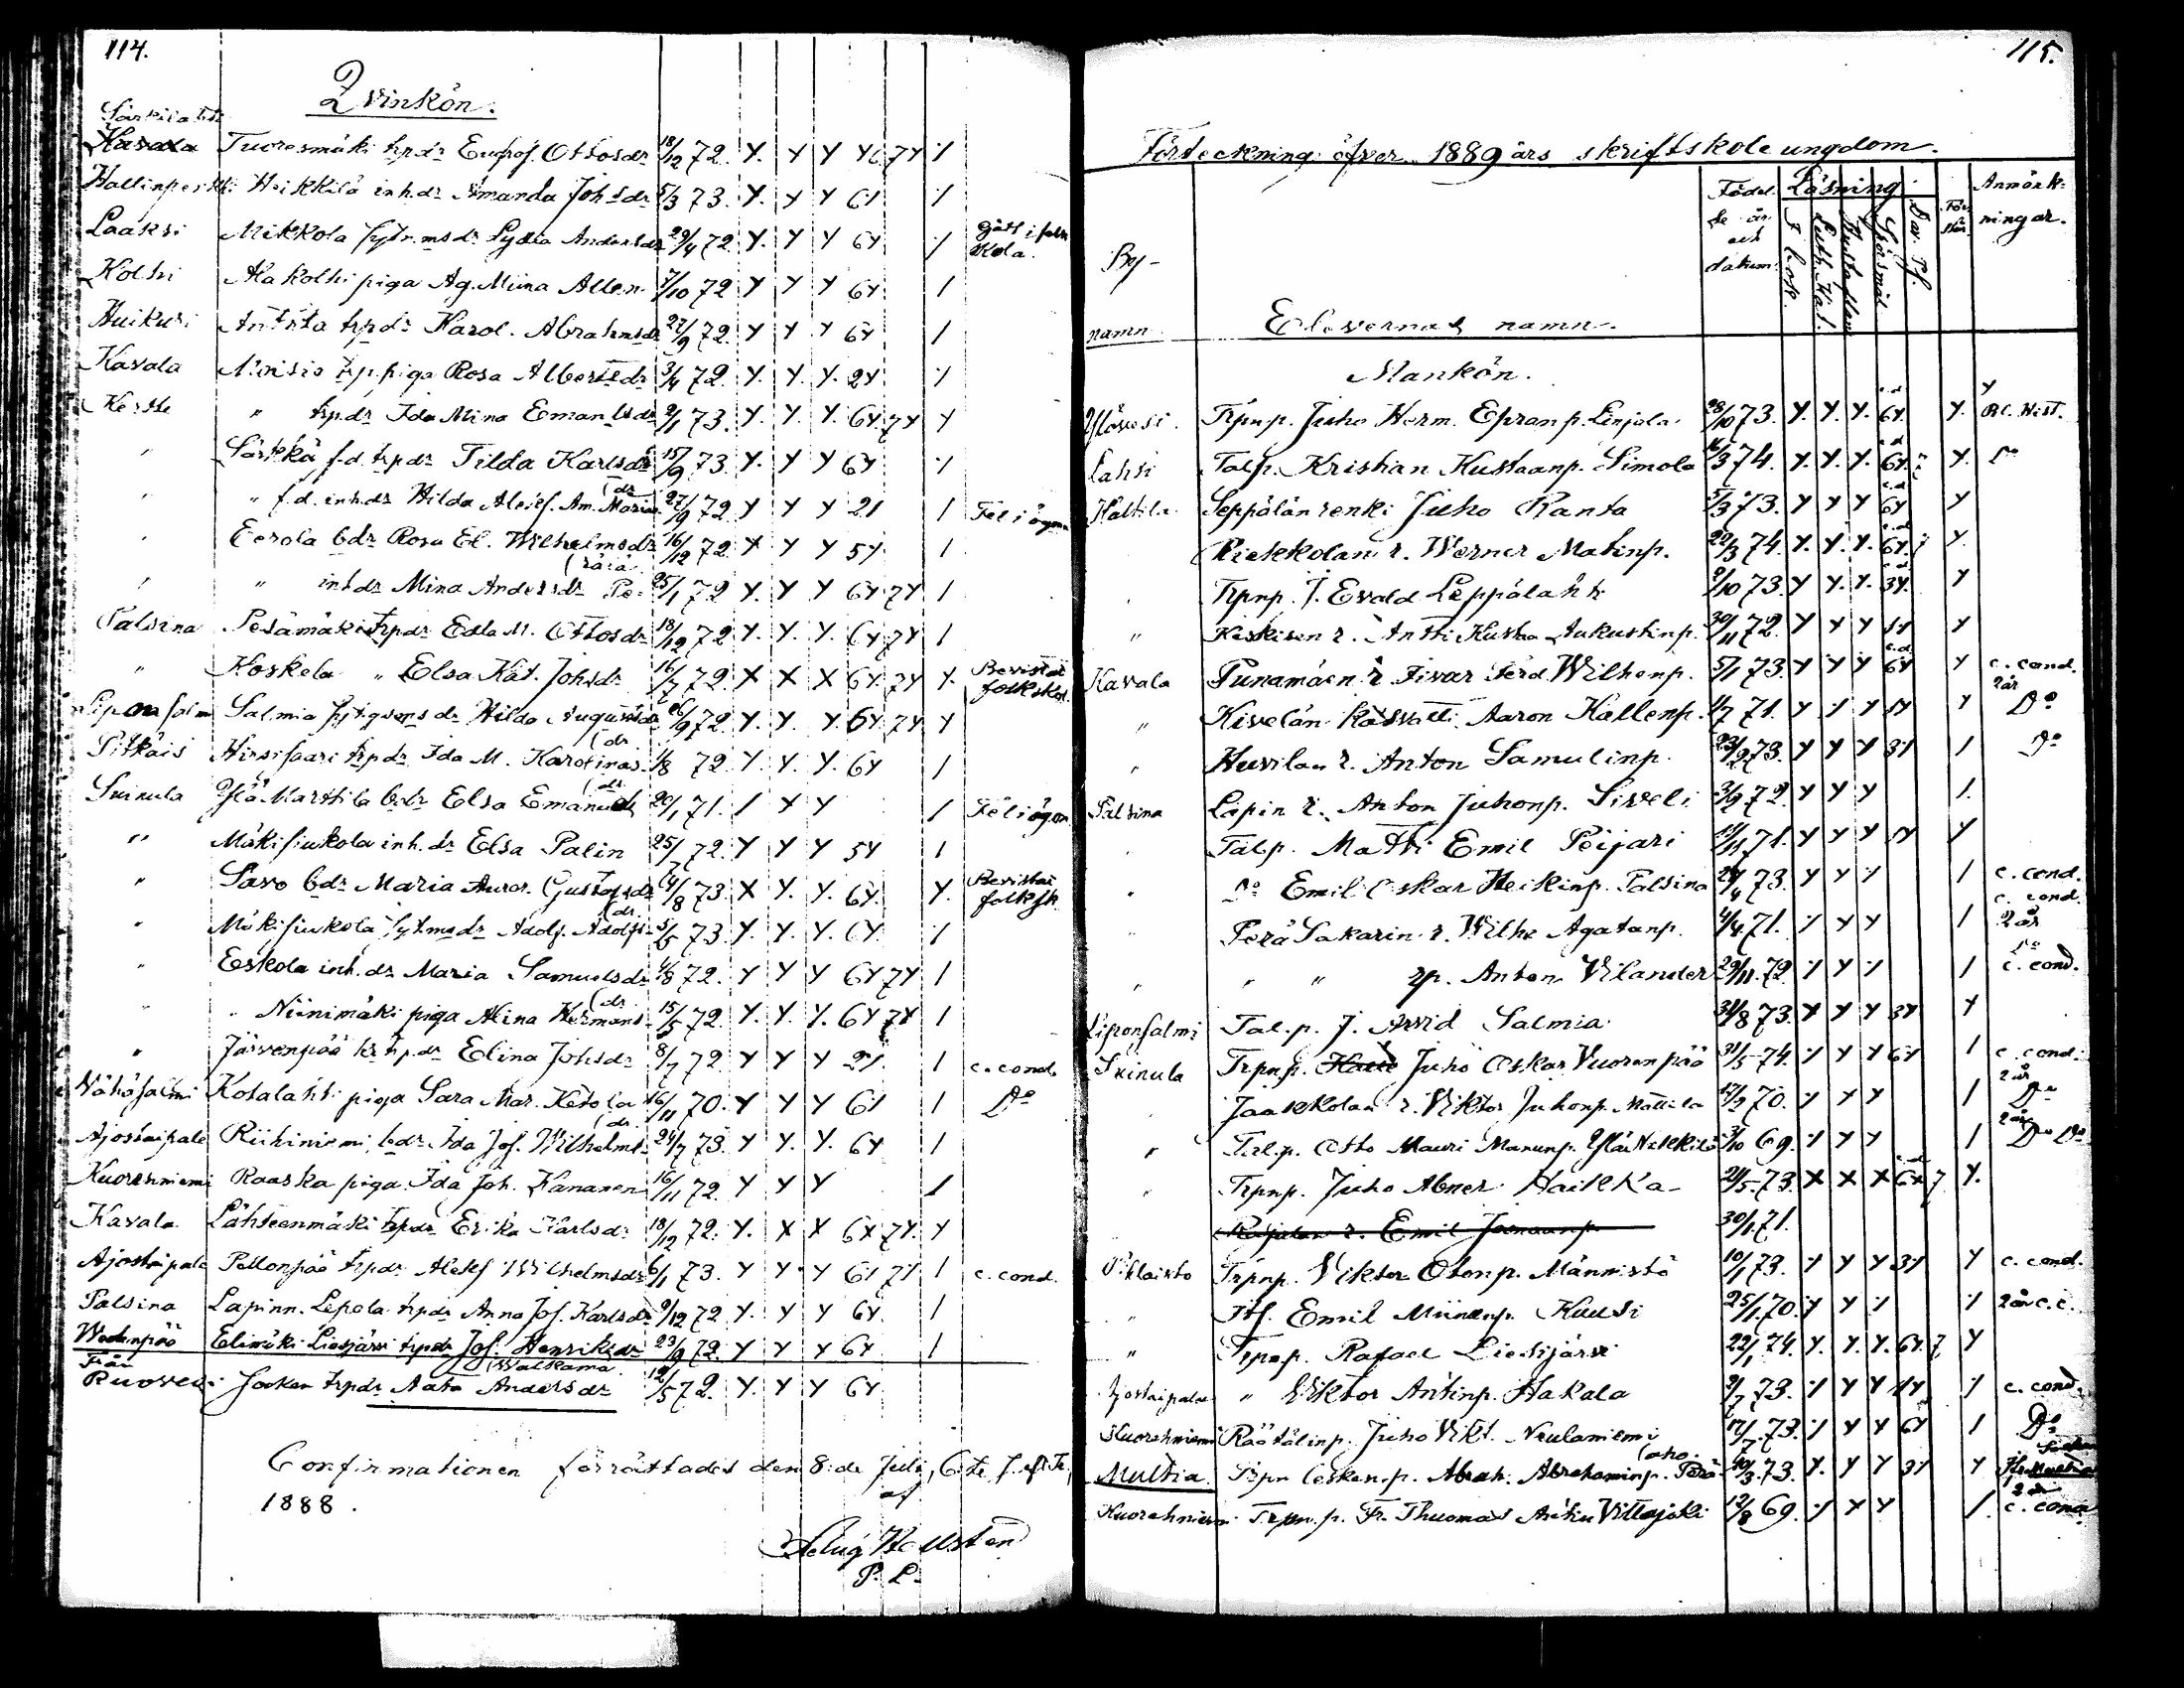 114.
Qvinkön.
Särkilahti
Kavala Tuoresmäki trp.dr Eufros. Ottosdr 18/12 72. Y. Y Y Y6 7Y 1/
Hallinper Heikkilä inh.dr Amanda Johsdr 5/3 73. Y. Y Y 61 1/
Laaksi Mikkola Lydia Andersdr 29/4 72 Y. Y Y 6Y 1/ gått i folk
skola.
Kolhi Alakolhi piga Ag. Miina Allen 7/10 72 Y Y Y 6Y. 1
Huikuri Anttila trpdr Karol. Abrahmsdr 27/9 72. Y Y Y 6Y 1
Kavala Moisio trp.piga Rosa Albertsdr 3/4 72. Y. Y. Y. 2Y 1/
Kertte " trp.dr Ida Mina Emanlsdr 2/1 73. Y. Y. Y. 6Y. 7Y Y
" Särkkä f.d. trpdr Tilda Karlsdr 15/9 73. Y. Y Y 6Y 1/
(dr
" " f.d. inh.dr Hilda Alexs. Am. Maria 27/9 72. Y Y Y 21 1 Fel i ögon
" Eerola bdr Rosa El. Wilhelmsdr 16/12 72. Y Y Y 5Y. 1
" " inhdr Mina Andersdr Pe- 25/1 72 Y. Y Y 6Y 7Y 1
Palsina Pesämäki trpdr Edla M. Ottosdr 18/12 72 Y. Y. Y. 6Y 7Y 1
" Koskela " Elsa Kat. Johsdr 16/7 72. X X X 6Y. 7Y Y. Bevistat
folkskol.
Liponsalm Salmia Hilda Augustsdr 26/9 72. Y. Y. Y. 6Y 7Y Y
(dr.
Pitkäis Hirsisaari trpdr Ida M. Karolinas- 1/8 72. Y. Y. Y. 6Y 1
(dr.
Suinula Ylä Marttila bdr Elsa Emanuels 20/1 71. 1 Y Y 1 Fel i ögon
" Mäkisiukola inh.dr Elsa Palin 25/7 72. Y Y Y 5Y 1
" Savo bdr Maria Auror. Gustafsdr 14/8 73. X Y. Y. 6Y. Y. Bevistat
folksk.
(dr.
" Mäkisiukola Adolf. Adolfs- 5/5 73. Y. Y. Y. 6Y. 1/
" Eskola inh.dr Maria Samuelsdr 4/8 72. Y Y Y 6Y 7Y 1
(dr.
" " Niinimäki piga Alina Hermans- 15/5 72. Y. Y. Y. 6Y 7Y 1
" Järvenpää trpdr Elina Johsdr 8/7 72 Y Y Y 2Y. 1 c. cond.
Vähäsalmi Kotalahti piga Sara Mar. Ketola 16/11 70. Y Y Y 61 1 Do
(dr.
Ajostaipale Riihiniemi bdr Ida Jos. Wilhelms- 24/7 73. Y Y. Y. 6Y 1
Kuorehniemi Raaska piga Ida Joh. Kananen 16/11 72. Y Y Y 1
Kavala Lähteenmäki trpdr Erika Karlsdr 18/12 72. Y. X X 6X 7Y. Y
Ajostaipale Pellonpää trpdr Alexs Wilhelmsdr 6/1 73. Y Y Y 61 71 1 c. cond.
Palsina Lapinn. Lepola trpdr Anna Jos. Karlsdr 9/12 72 Y. Y Y 6Y. 1
Wedenpää Elimäki Liesjärvi trpdr Jos. Henriksdr 23/9 72. Y Y Y 6Y 1
Från (Walkama.
Ruovesi Jooken trpdr Aata Andersdr 12/5 72. Y. Y Y 6Y
Confirmationen förrättades den 8:de Juli, 6:te s. eft. Tr,
1888. af
Hellsten
P. L.
115.
Förteckning öfver 1889 års skriftskoleungdom.
By-
namn
Elevernas namn.
Födel
se år
och
datum.
Läsning
I bok.
Luth. Kat.
Hustaflan
Spörsmål
Dav. Ps.
För
stån.
Anmärk-
ningar.
Mankön.
Ylövesi. Trpnp. Juho Herm. Epranp. Linjola 28/10 73. Y. Y. Y. 6Y. Y. Bl. Hist.
Lahti Talp. Kristian Kustaanp. Simola 16/3 74. Y. Y. Y. 6Y. 7 Y. Do
Haltila Seppälän renki Juho Ranta 5/3 73. Y Y Y 6Y Y
Riekkolan r. Werner Matinp. 22/3 74. Y. Y. Y. 6Y. 7 Y.
" Trpnp. J. Evald Leppälahti 2/10 73. Y Y. Y. 3Y. Y
" Keskisen r. Antti Kustaa Aukustinp. 30/11 72. Y Y Y 5Y Y
Kavala Punamäen r. Iivar Ferd. Wilhenp. 5/1 73. Y Y Y 6Y Y c. cond.
2 år
" Kivelän kasvatti Aaron Kallenp. 4/7 71. Y Y Y 1Y Y Do
" Huvilan r. Anton Samulinp. 23/2 73. Y Y Y 3Y 1 Do
Palsina Lapin r. Anton Juhonp. Sirveli 3/9 72. Y Y Y 1.
" Talp. Matti Emil Peijari 11/11 71. Y Y Y 1Y Y
" Do Emil Oskar Heikinp. Palsina 24/4 73. Y Y 1 1 c. cond.
c. cond.
" Perä Sakarin r. Wilho Agatanp. 4/4 71. 1 Y Y 1 2 år
" " " rp. Anton Vilander 29/11 72. 1 Y 1 1 c. cond.
Liponsalmi Tal.p. J. Arvid Salmia 31/8 73. Y Y Y 3Y Y
Suinula Trpnp. Juho Oskar Vuorenpää 31/5 74. 1 Y Y 6Y 1 c. cond.
2 år
" Jaakkolan r. Viktor Juhonp. Mattila 17/9 70. 1 Y Y 1 Do
2 år
" Tal.p. Otto Mauri Manunp. Ylä Heikkilä 3/10 69. 1 Y Y 1 Do Do
" Trpnp. Juho Abner Haikka 24/5 73. X X X 6X 7 Y.
" r. Emil Joonaanp. 30/1 71.
Pihlaisto Trpnp. Viktor Otonp. Männistö 10/1 73. 1 Y Y 3Y Y c. cond.
" Itf. Emil Miinanp. Kuusi 25/1 70. 1 Y 1 1 2 år c. c.
" Trpnp. Rafael Liesijärvi 22/1 74. Y. Y. Y. 6Y. 7 Y
Ajostaipale " Viktor Antinp. Hakala 9/7 73. 1 Y Y 4Y 1 c. cond.
Kuorehniemi Räätälinp. Juho Vikt. Neulaniemi 17/7 73. 1 Y Y 6Y 1 Do
(aho.
Multia. Trpn lesken.p. Abrah. Abrahaminp. Perä- 30/3 73. Y. Y Y 3Y Y
2 år
Kuorehniemi Trpn.p. Fr. Thuomas Villajoki 12/8 69. 1 Y Y 1. c. cond